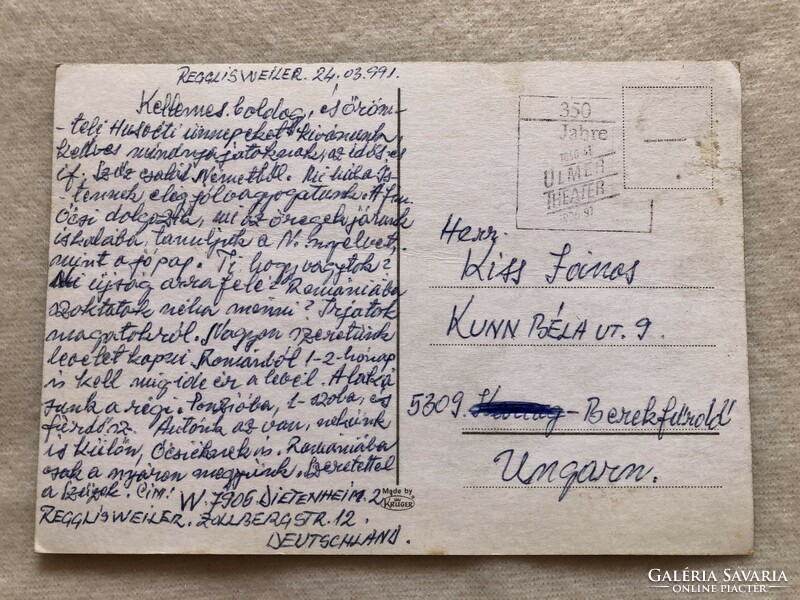 REGGLISWEILER. 24.03.991.
Kellemes boldog, és öröm-
-teli Husvéti ünnepeket kivánunk,
kedves mindnyájatoknak, az idős és
if. Szűz család Németből. Mi hála Is-
tennek, elég jól vagyogatunk. A
Öcsi dolgozik, mi az öregek járunk
iskolába, tanuljuk a N. nyelvet,
mint a jó pap. Ti hogy vagytok?
Mi újság arra felé? Romániába
szoktatok néha menni? Irjatok
magatokról. Nagyon szeretünk
levelet kapni. Romániból 1-2-hónap
is kell mig ide ér a levél. A laká
sunk a régi. Panzióba, 1-szoba, és
fürdősz. Autónk az van, nekünk
is külön, Öcsiéknek is. Romániába
csak a nyáron megyünk. Szeretettel
a Szűzék. Cím! W. 7906 DIETENHEIM. 2
REGGLISWEILER. ZOLLBERGSTR. 12.
DEUTSCHLAND.
350
Jahre
ULMER
THEATER
Herr.
Kiss János
KUNN BÉLA UT. 9.
5309. -Berekfürdő
Ungarn.
Made by
KRÜGER
GALÉRIA SAVARIA
ONLINE PIACTÉR